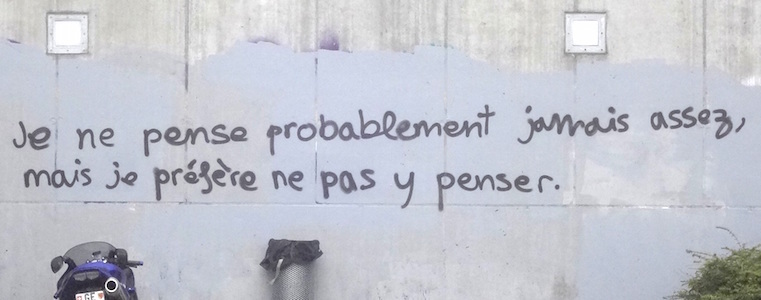 Je ne pense probablement jamais assez,
mais je préfère ne pas y penser.
GE